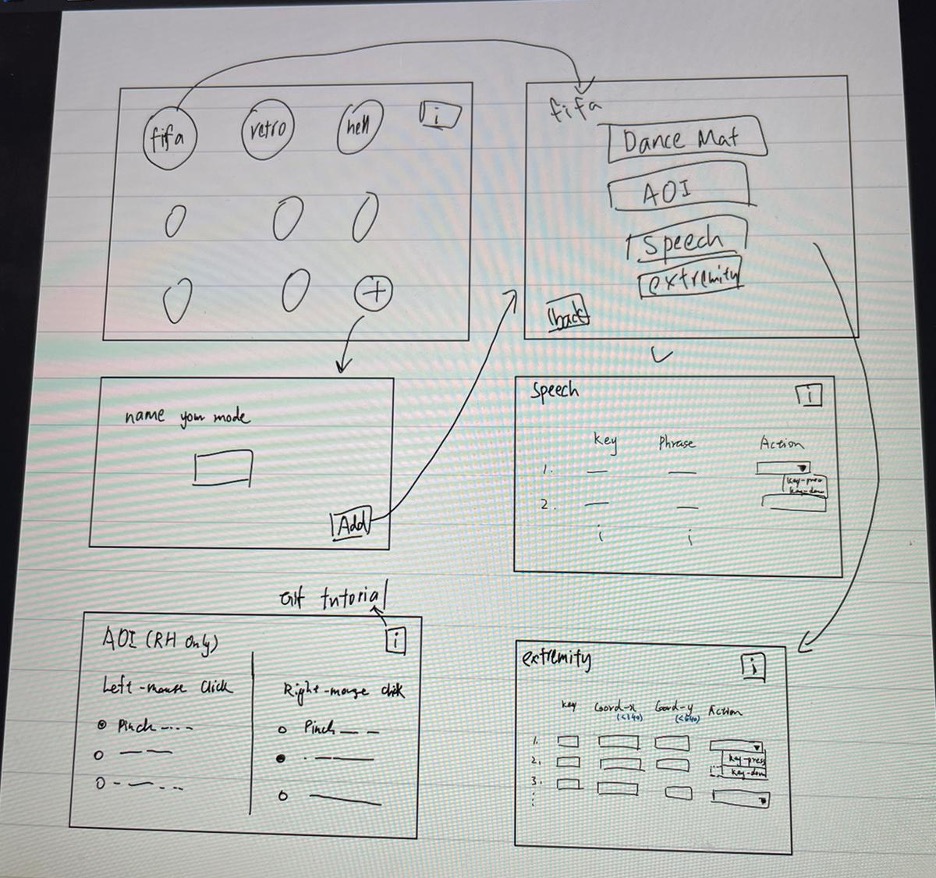 fifa
retro
hell
i
+
fifa
Dance Mat
AOI
Speech
extremity
back
name your mode
Add
Speech
i
Key Phrase Action
1.
key-press
key-down
2.
GIF tutorial
AOI (RH Only)
i
Left-mouse click
Pinch
Right-mouse click
Pinch
extremity
i
Key Coord-x Coord-y Action
(<640)
1.
2.
key-press
key-down
3.